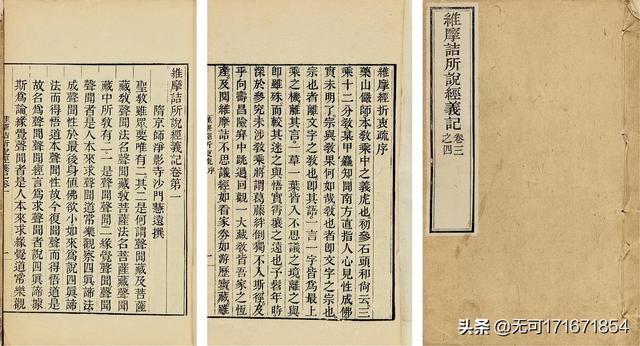 維摩詰所說經義記卷第一
隋京師淨影寺沙門慧遠撰
聖教雖眾要唯有二其二是何謂聲聞藏及菩薩
藏教聲聞法名聲聞藏教菩薩法名菩薩藏聲聞
藏中所教有二一是聲聞聲聞二緣覺聲聞聲聞
聲聞者是人本來求聲聞道常樂觀察四眞諦法
成聲聞性於最後身値佛欲小如來爲說四眞諦
法而得悟道本聲聞性故今復聞聲而得悟道是
故名爲聲聞聲聞經言爲求聲聞者說四眞諦據
斯爲論緣覺聲聞者是人本來求緣覺道常樂觀
維摩經折衷疏序
藥山儼師本敎乘中之義虎也初參石頭和尙云三
乘十二分敎某甲麤知聞南方直指人心見性成佛
實未明了宗與敎果何如哉敎也者卽文字之宗也
宗也者離文字之敎也卽其語一言一字皆爲最上
乘之機離其言一草一葉皆入不思議之境離之與
卽雖殊而較其迷之與悟實霄壤之遠也予曩年時
深於參究未涉敎乘將謂葛藤絆倒獨不入斯徑及
乎向壽昌險穽中跳過回觀一大藏敎皆吾家之恆
產及閱維摩詰不思議經如看家券如游歷寶藏雖
維摩詰所說經義記
卷三
之四
头条 @无可171671854